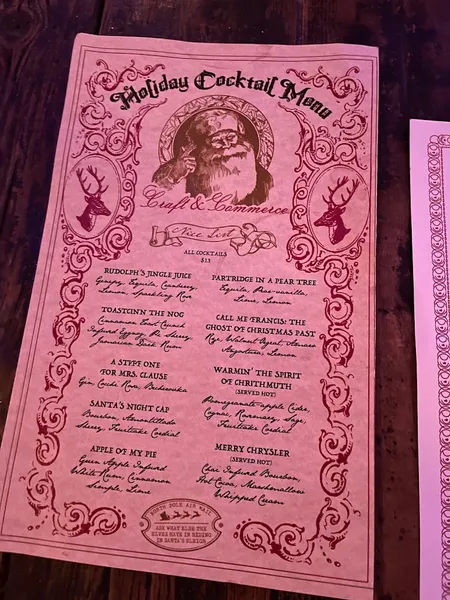 Holiday Cocktail Menu
Craft & Commerce
Nice List
ALL COCKTAILS
$13
RUDOLPH'S JINGLE JUICE
Tequila, Cranberry,
Lemon, Sparkling
PARTRIDGE IN A PEAR TREE
Tequila, Pear-vanilla,
Lime, Lemon
TOASTCINN THE NOG
Cinnamon Toast Crunch
Infused Eggnog, Px Sherry,
Jamaican Black Rum
CALL ME FRANCIS: THE
GHOST OF CHRISTMAS PAST
Rye, Walnut, Amaro
Angostura, Lemon
A STIFF ONE
FOR MRS. CLAUSE
Gin, Cocchi Rosa,
WARMIN' THE SPIRIT
OF CHRITHMUTH
(SERVED HOT)
Pomegranate-apple Cider,
Cognac, Rosemary, Sage,
Fruitcake Cordial
SANTA'S NIGHT CAP
Bourbon, Amontillado
Sherry, Fruitcake Cordial
APPLE OF MY PIE
Green Apple Infused
White Rum, Cinnamon
Simple, Lime
MERRY CHRYSLER
(SERVED HOT)
Chai Infused Bourbon,
Hot Cocoa, Marshmallow
Whipped Cream
NORTH POLE AIR MAIL
ASK WHAT ELSE THE
ELVES HAVE IN HIDING
IN SANTA'S